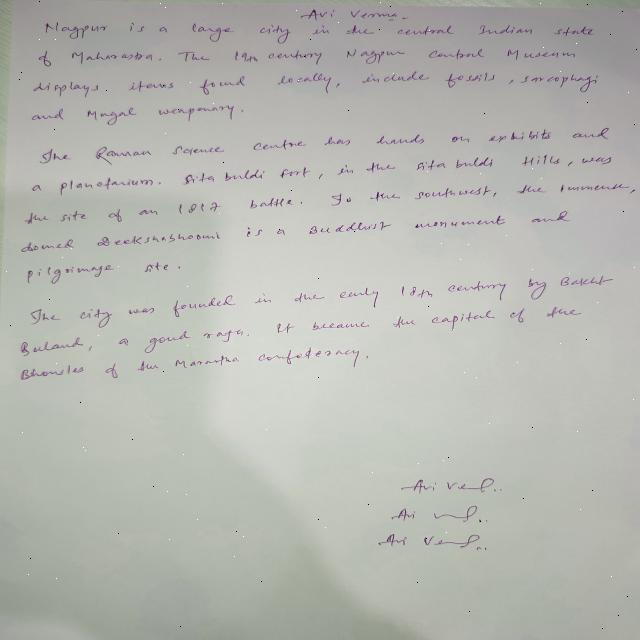 Avi Verma.
Nagpur is a large city in the central Indian state
of Maharastra. The 19th century Nagpur Central Museum
displays items found locally, include fossils, sarcophagi
and Mugal weaponary.
The Raman Science centre has hands on exhibits and
a planetarium. Sitabuldi fort, in the Sitabuldi Hills, was
the site of an 1817 battle. To the southwest, the immense,
domed Deekshabhoomi is a Buddhist monument and
pilgrimage site.
The city was founded in the early 18th century by Bakht
Buland, a gond raja. It became the capital of the
Bhonsles of the Maratha confoteracy.
Avi
Avi
Avi